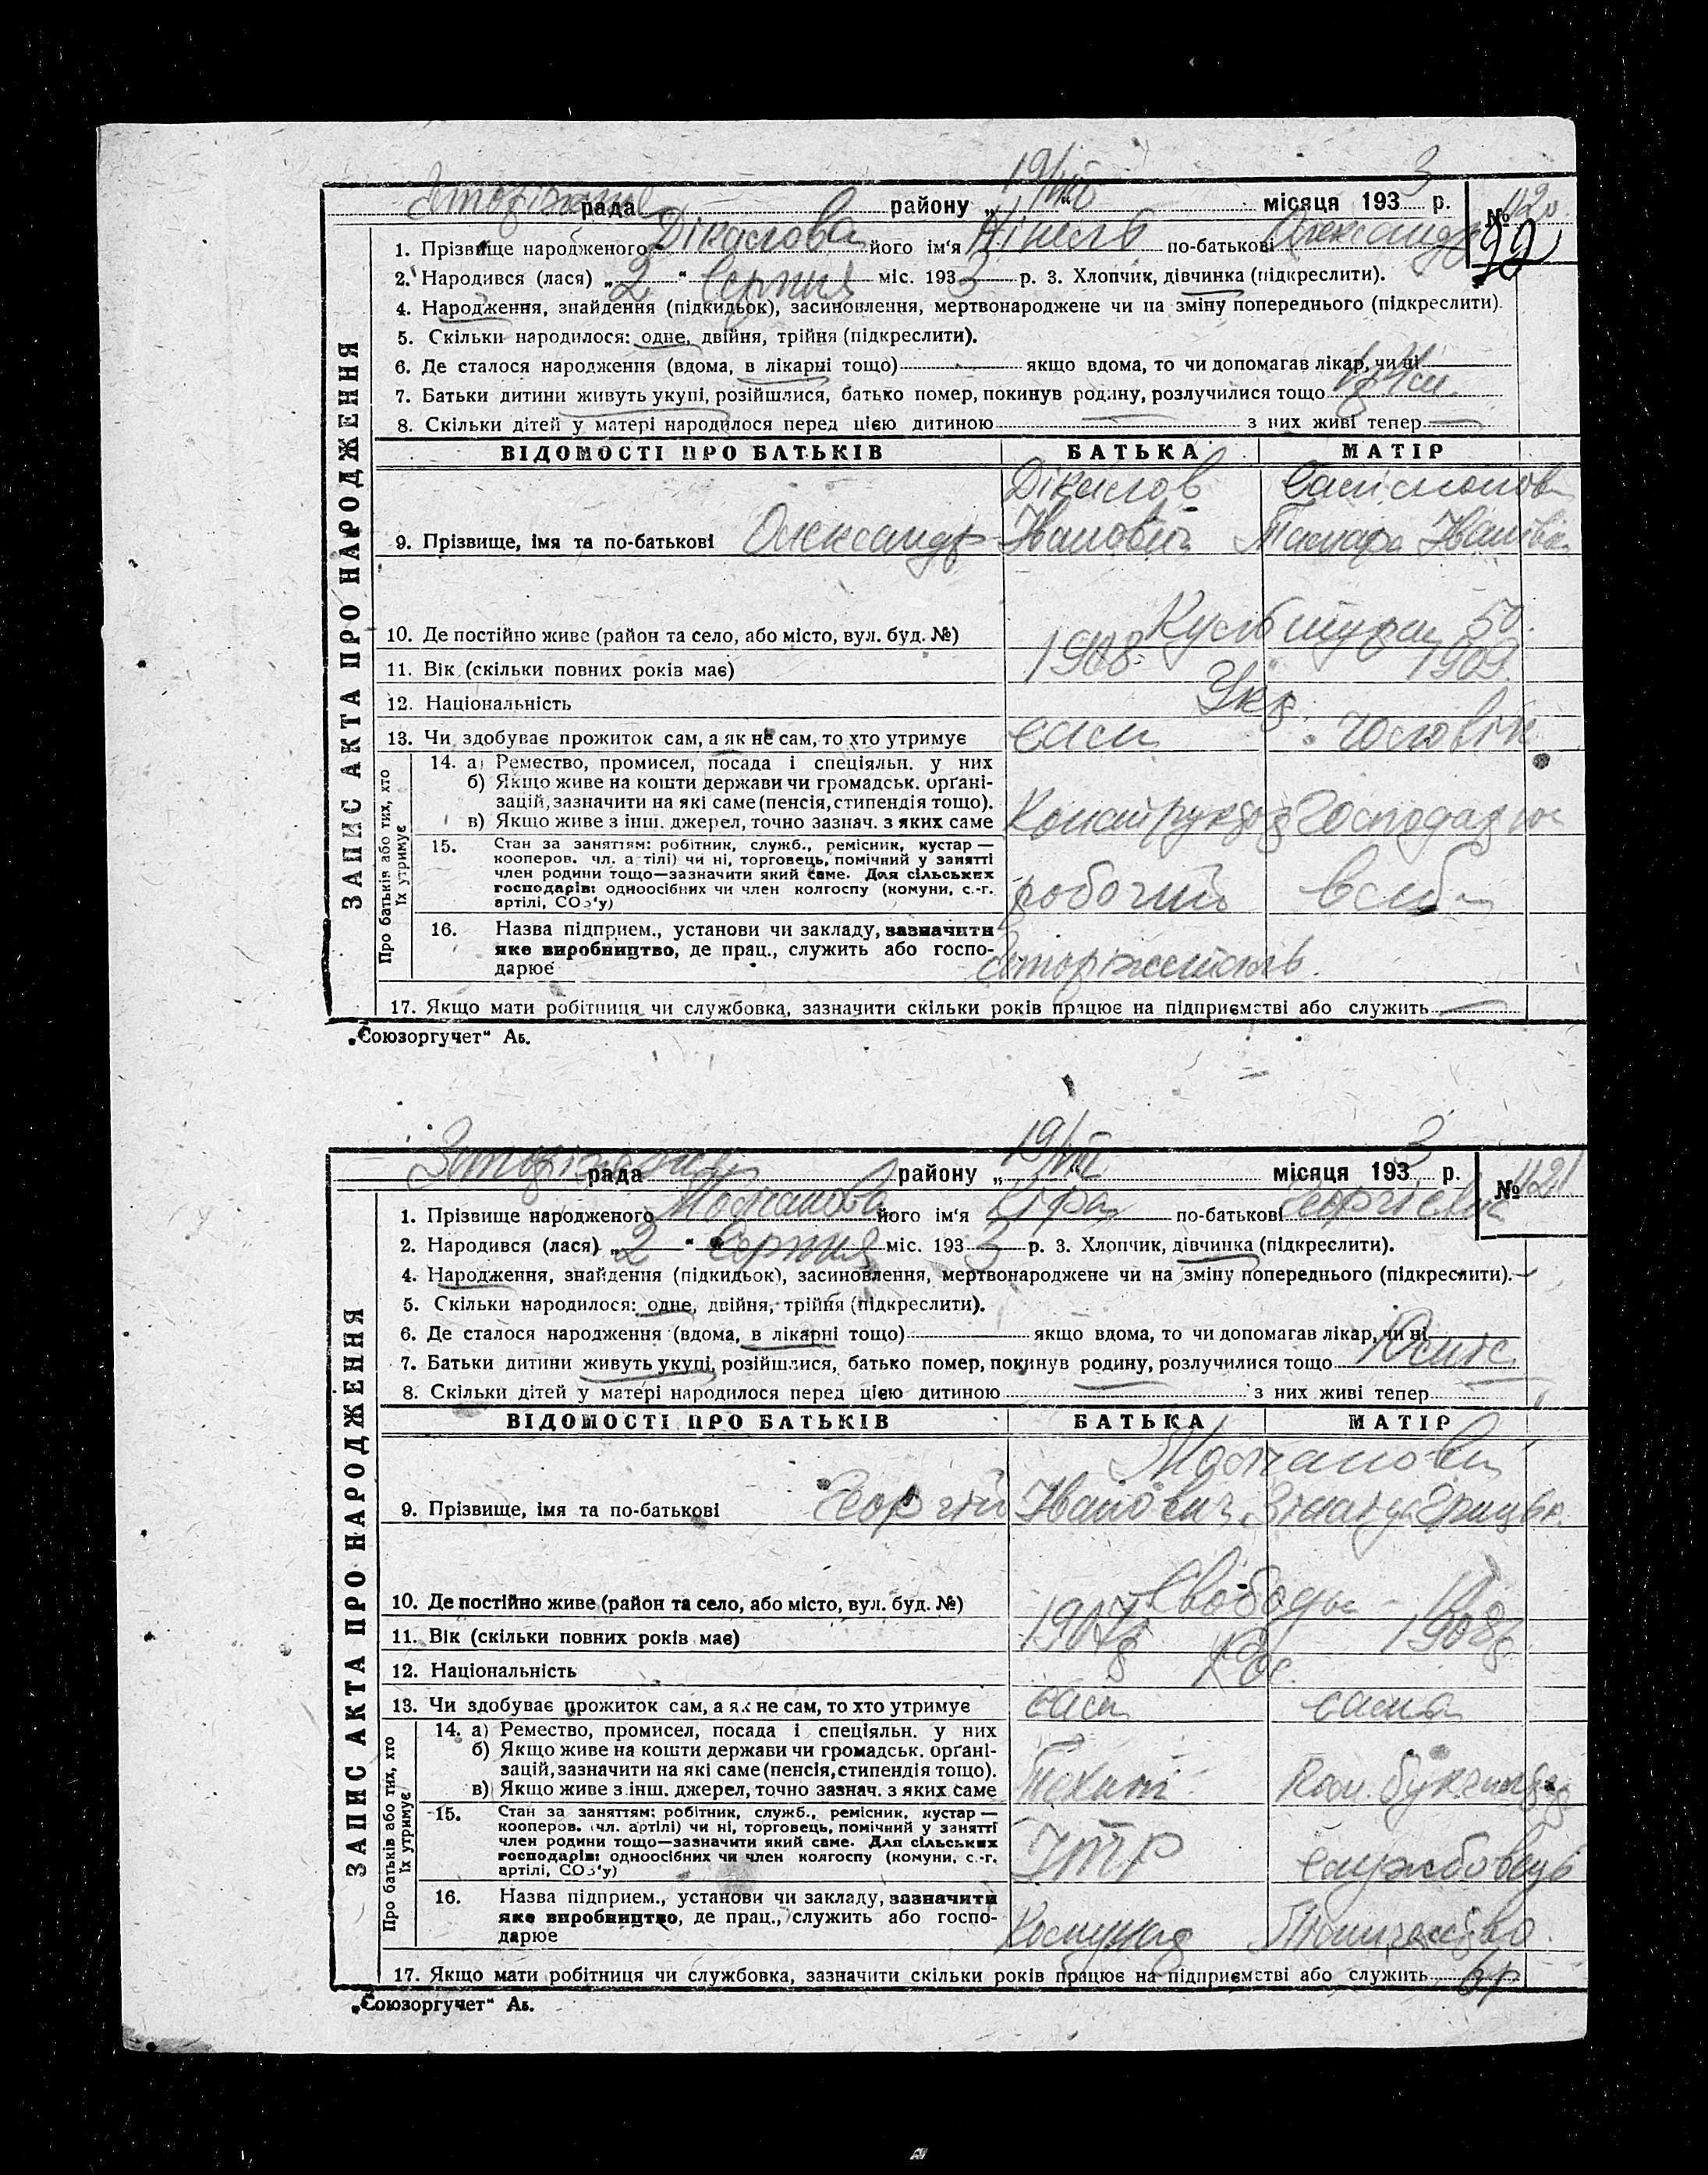 рада району „19/VIII“ місяця 1933 р.
№ 1120
99
ЗАПИС АКТА ПРО НАРОДЖЕННЯ
1. Прізвище народженого Дікалова його ім‘я Нінель по-батькові Олександр
2. Народився (лася) „2“ Серпня міс. 1933 р. 3. Хлопчик, дівчинка (підкреслити).
4. Народження, знайдення (підкидьок), засиновлення, мертвонароджене чи на зміну попереднього (підкреслити).
5. Скільки народилося: одне, двійня, трійня (підкреслити).
6. Де сталося народження (вдома, в лікарні тощо) якщо вдома, то чи допомагав лікар, чи ні
7. Батьки дитини живуть укупі, розійшлися, батько помер, покинув родину, розлучилися тощо
8. Скільки дітей у матері народилося перед цією дитиною — з них живі тепер —
ВІДОМОСТІ ПРО БАТЬКІВ БАТЬКА МАТІР
Дікалов
9. Прізвище, імя та по-батькові Олександр Іванович Тамара Іванівна
10. Де постійно живе (район та село, або місто, вул. буд. №) Культури 50.
11. Вік (скільки повних років має) 1908 1909.
12. Національність Укр.
13. Чи здобуває прожиток сам, а як не сам, то хто утримує сам чоловік
Про батьків або тих, хто їх утримує
14. а) Ремество, промисел, посада і спеціяльн. у них
б) Якщо живе на кошти держави чи громадськ. орґані-
зацій, зазначити на які саме (пенсія, стипендія тощо).
в) Якщо живе з інш. джерел, точно зазнач. з яких саме Конструктор Господарює
15. Стан за заняттям: робітник, служб., ремісник, кустар —
кооперов. чл. артілі) чи ні, торговець, помічний у занятті
член родини тощо—зазначити який саме. Для сільських
господарів: одноосібних чи член колгоспу (комуни, с.-г.
артілі, СОЗ‘у) робочий
16. Назва підприєм., установи чи закладу, зазначити
яке виробництво, де прац., служить або госпо-
дарює
17. Якщо мати робітниця чи службовка, зазначити скільки років працює на підприємстві або служить —
„Союзоргучет“ Аь.
рада району „19/VIII“ місяця 1933 р.
№ 1121
ЗАПИС АКТА ПРО НАРОДЖЕННЯ
1. Прізвище народженого Молчанова його ім‘я Іра по-батькові Георгієвна
2. Народився (лася) „2“ Серпня міс. 1933 р. 3. Хлопчик, дівчинка (підкреслити).
4. Народження, знайдення (підкидьок), засиновлення, мертвонароджене чи на зміну попереднього (підкреслити).
5. Скільки народилося: одне, двійня, трійня (підкреслити).
6. Де сталося народження (вдома, в лікарні тощо) якщо вдома, то чи допомагав лікар, чи ні
7. Батьки дитини живуть укупі, розійшлися, батько помер, покинув родину, розлучилися тощо
8. Скільки дітей у матері народилося перед цією дитиною — з них живі тепер
ВІДОМОСТІ ПРО БАТЬКІВ БАТЬКА МАТІР
Молчанови
9. Прізвище, імя та по-батькові Георгій Іванович
10. Де постійно живе (район та село, або місто, вул. буд. №) Свободы
11. Вік (скільки повних років має) 1907р 1908р.
12. Національність Рос.
13. Чи здобуває прожиток сам, а як не сам, то хто утримує сам сама
Про батьків або тих, хто їх утримує
14. а) Ремество, промисел, посада і спеціяльн. у них
б) Якщо живе на кошти держави чи громадськ. орґані-
зацій, зазначити на які саме (пенсія, стипендія тощо).
в) Якщо живе з інш. джерел, точно зазнач. з яких саме Технік
15. Стан за заняттям: робітник, служб., ремісник, кустар —
кооперов. чл. артілі) чи ні, торговець, помічний у занятті
член родини тощо—зазначити який саме. Для сільських
господарів: одноосібних чи член колгоспу (комуни, с.-г.
артілі, СОЗ‘у) ІТР службовець
16. Назва підприєм., установи чи закладу, зазначити
яке виробництво, де прац., служить або госпо-
дарює Комунар
17. Якщо мати робітниця чи службовка, зазначити скільки років працює на підприємстві або служить 6р
„Союзоргучет“ Аь.